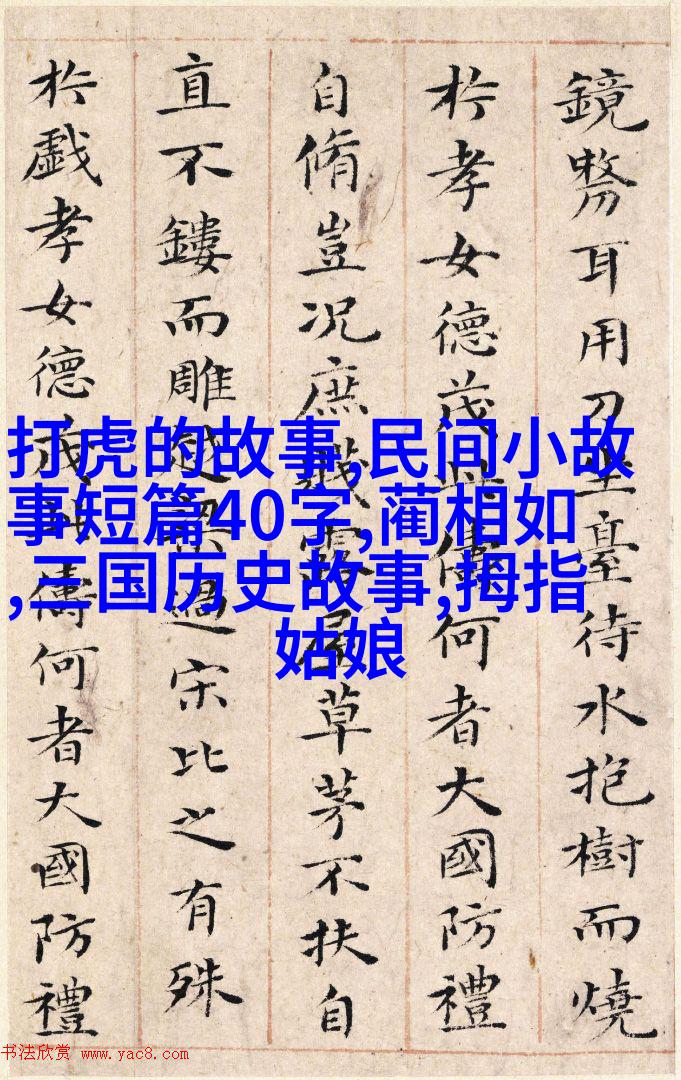 鏡剺耳用刀坐臺待水抱樹而燒
於孝女德茂此儔何者大國防禮
自脩豈況庶賤露屋草茅不扶自
直不鏤而雕越梁過宋比之有殊
於戲孝女德茂此儔何者大國防禮
打虎的故事,民间小故
事短篇40字,蔺相如
,三国历史故事,拇指
姑娘
书法欣赏 www.yac8.com